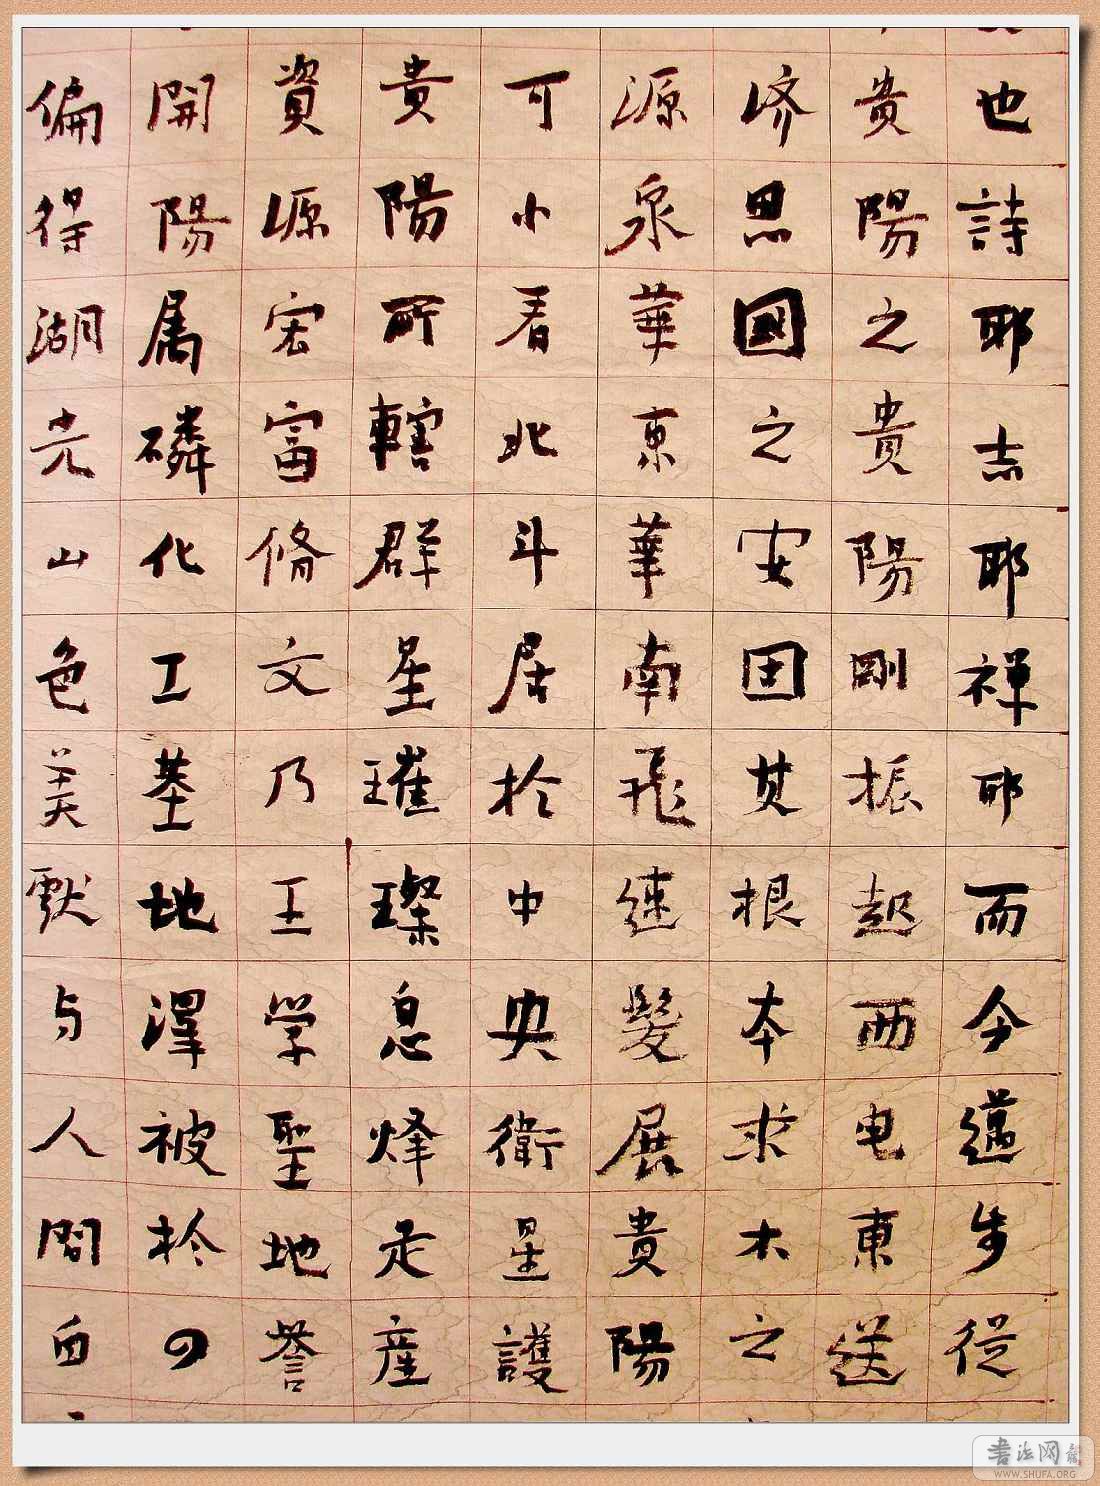 也詩耶吉耶禅耶而今邁步從
貴陽之貴陽剛振起西电東送
济思國之安田其根本求木之
源泉華東華南飛速發展貴陽
可小看北斗居於中央衛星護
貴陽所轄群星璀璨息烽走産
資源宏富脩文乃王学聖地誉
開陽属磷化工基地澤被於四
偏得湖光山色美獸与人間白
書法网
WWW.SHUFA.ORG